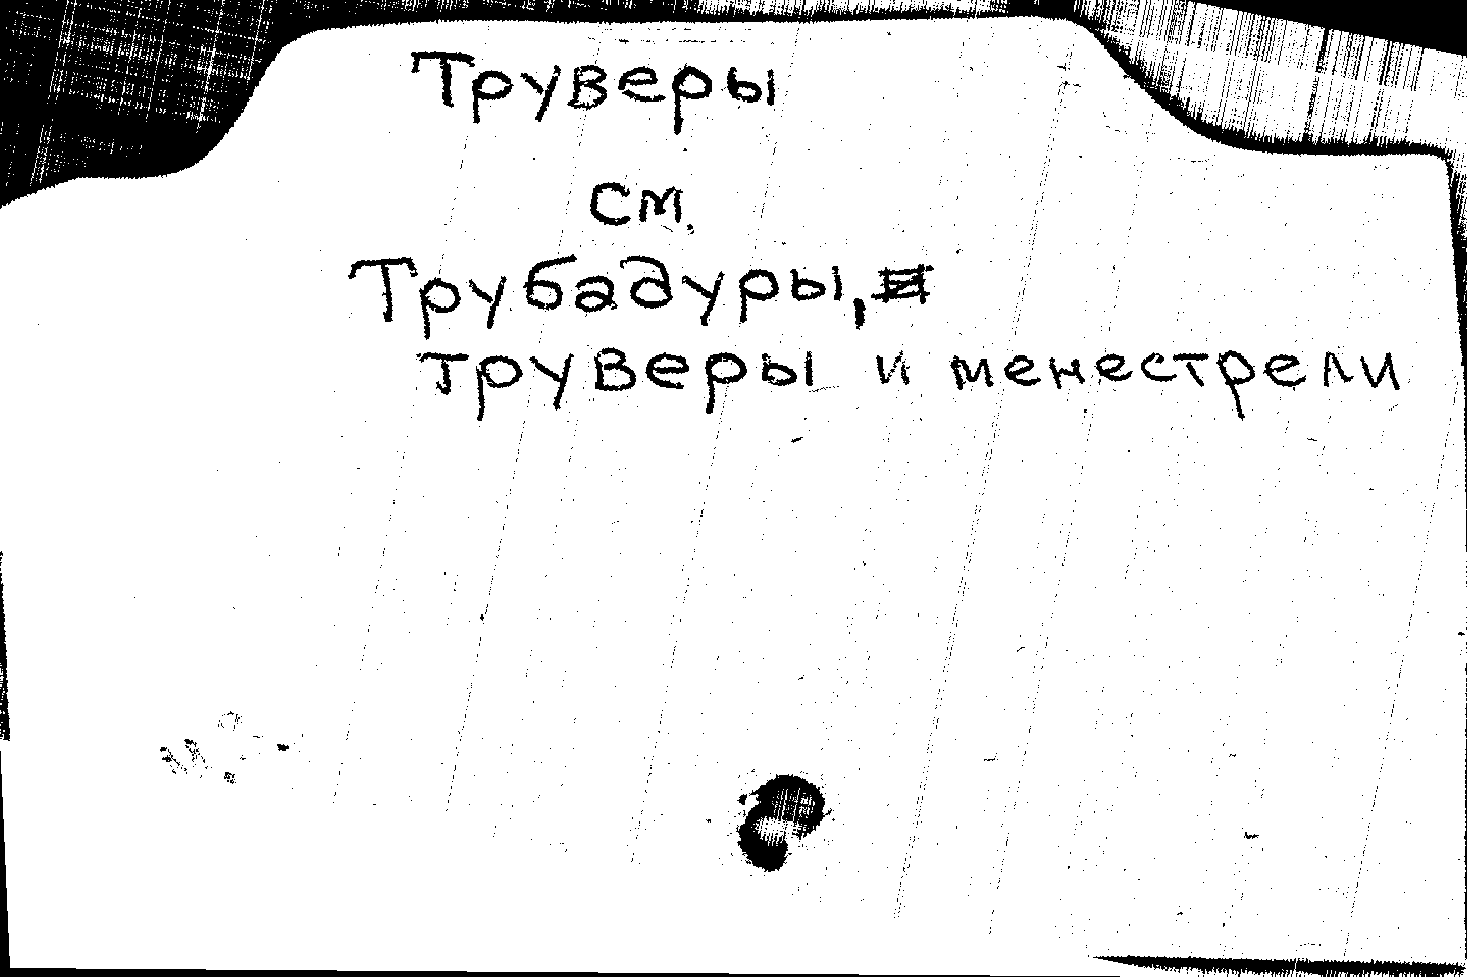 Труверы
см.
Трубадуры,
труверы и менестрели